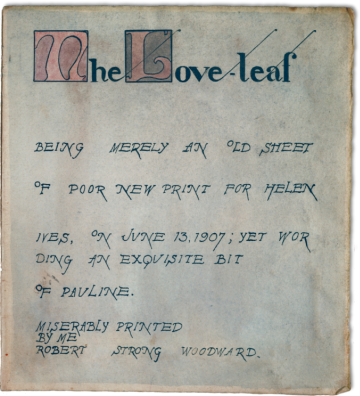 The Love-leaf
BEING MERELY AN OLD SHEET
OF POOR NEW PRINT FOR HELEN
IVES, ON JUNE 13, 1907; YET WOR
DING AN EXQUISITE BIT
OF PAULINE.
MISERABLY PRINTED
BY ME
ROBERT STRONG WOODWARD.